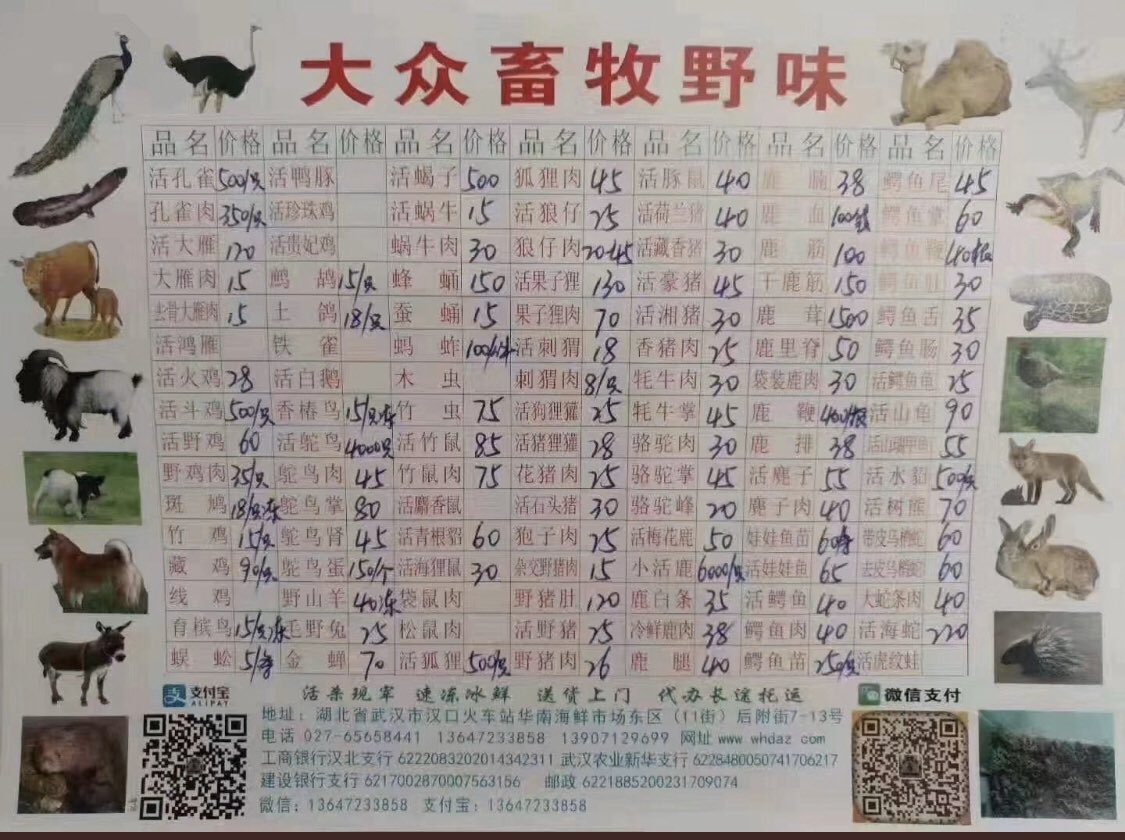 大众畜牧野味
品名 价格 品名 价格 品名 价格 品名 价格 品名 价格 品名 价格 品名 价格
活孔雀 500/只 活鸭豚 活蝎子 500 狐狸肉 45 活豚鼠 40 鹿 腩 38 鳄鱼尾 45
孔雀肉 350/只 活珍珠鸡 活蜗牛 15 活狼仔 25 活荷兰猪 40 鹿 血 鳄鱼掌 60
活大雁 120 活贵妃鸡 蜗牛肉 30 狼仔肉 20-45 活藏香猪 30 鹿 筋 100 鳄鱼鞭
大雁肉 15 鹧 鸪 15/只 蜂 蛹 150 活果子狸 130 活豪猪 45 干鹿筋 150 鳄鱼肚 30
去骨大雁肉 15 土 鸽 18/只 蚕 蛹 15 果子狸肉 70 活湘猪 30 鹿 茸 1500 鳄鱼舌 35
活鸿雁 铁 雀 蚂 蚱 活刺猬 18 香猪肉 25 鹿里脊 50 鳄鱼肠 30
活火鸡 28 活白鹅 木 虫 刺猬肉 8/只 牦牛肉 30 袋装鹿肉 30 活鳄鱼龟 25
活斗鸡 500/只 香椿鸟 15/只冻 竹 虫 75 活狗狸獾 25 牦牛掌 45 鹿 鞭 400/根 活山龟 90
活野鸡 60 活鸵鸟 4000只 活竹鼠 85 活猪狸獾 28 骆驼肉 30 鹿 排 38 55
野鸡肉 35/只 鸵鸟肉 45 竹鼠肉 75 花猪肉 25 骆驼掌 45 活麂子 55 活水貂 500/只
斑 鸠 18/只冻 鸵鸟掌 80 活麝香鼠 活石头猪 30 骆驼峰 20 麂子肉 40 活树熊 70
竹 鸡 15/只 鸵鸟肾 45 活青根貂 60 狍子肉 25 活梅花鹿 50 娃娃鱼苗 带皮乌梢蛇 60
藏 鸡 90/只 鸵鸟蛋 150/个 活海狸鼠 30 杂交野猪肉 15 小活鹿 6000/只 活娃娃鱼 65 去皮乌梢蛇 60
线 鸡 野山羊 40冻 袋鼠肉 野猪肚 120 鹿白条 35 活鳄鱼 40 大蛇条肉 40
育槟鸟 15/只冻 毛野兔 25 松鼠肉 活野猪 25 冷鲜鹿肉 38 鳄鱼肉 40 活海蛇 220
蜈 蚣 金 蝉 70 活狐狸 500/只 野猪肉 26 鹿 腿 40 鳄鱼苗 250/只 活虎纹蛙
支付宝 ALIPAY 活杀现宰 速冻冰鲜 送货上门 代办长途托运 微信支付
地址：湖北省武汉市汉口火车站华南海鲜市场东区（11街）后附街7-13号
电话 027-65658441 13647233858 13907129699 网址 www whdaz com
工商银行汉北支行 6222083202014342311 武汉农业新华支行 6228480050741706217
建设银行支行 6217002870007563156 邮政 6221885200231709074
微信：13647233858 支付宝：13647233858